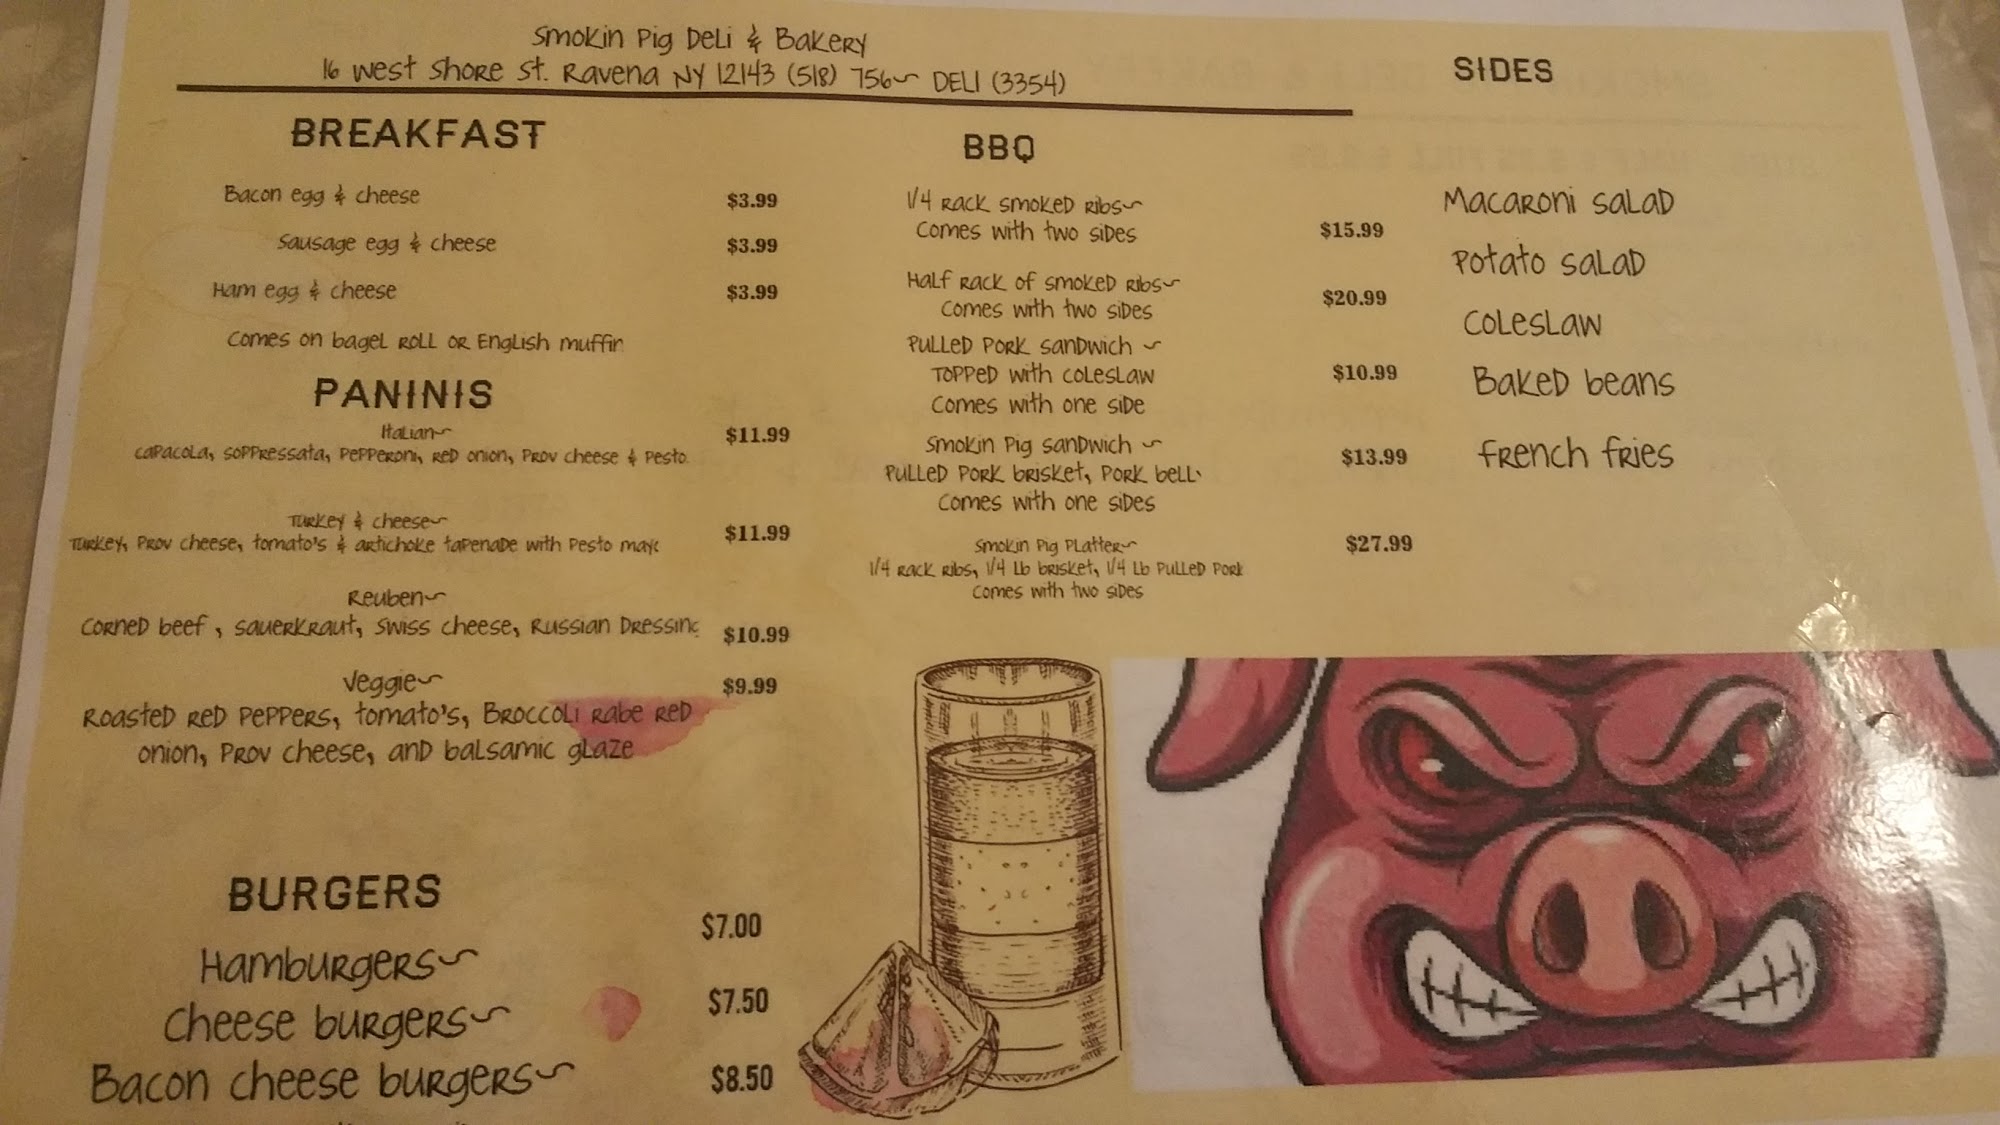 Smokin Pig Deli & Bakery
16 West Shore St. Ravena NY 12143 (518) 756~ DELI (3354)
BREAKFAST
Bacon egg & cheese $3.99
Sausage egg & cheese $3.99
Ham egg & cheese $3.99
Comes on bagel roll or English muffin
PANINIS
Italian~ $11.99
capacola, soppressata, pepperoni, red onion, prov cheese & pesto.
Turkey & cheese~ $11.99
Turkey, prov cheese, tomato's & artichoke tapenade with pesto mayo
Reuben~
Corned beef , sauerkraut, swiss cheese, Russian Dressing $10.99
Veggie~ $9.99
Roasted red peppers, tomato's, Broccoli rabe red
onion, prov cheese, and balsamic glaze
BURGERS
Hamburgers~ $7.00
Cheese burgers~ $7.50
Bacon cheese burgers~ $8.50
BBQ
1/4 rack smoked ribs~
Comes with two sides $15.99
Half rack of smoked ribs~
Comes with two sides $20.99
Pulled pork sandwich ~
Topped with coleslaw $10.99
Comes with one side
Smokin Pig sandwich ~
Pulled pork brisket, pork bell $13.99
Comes with one sides
Smokin Pig Platter~ $27.99
1/4 rack ribs, 1/4 Lb brisket, 1/4 Lb pulled pork
Comes with two sides
SIDES
Macaroni salad
Potato salad
Coleslaw
Baked beans
French fries